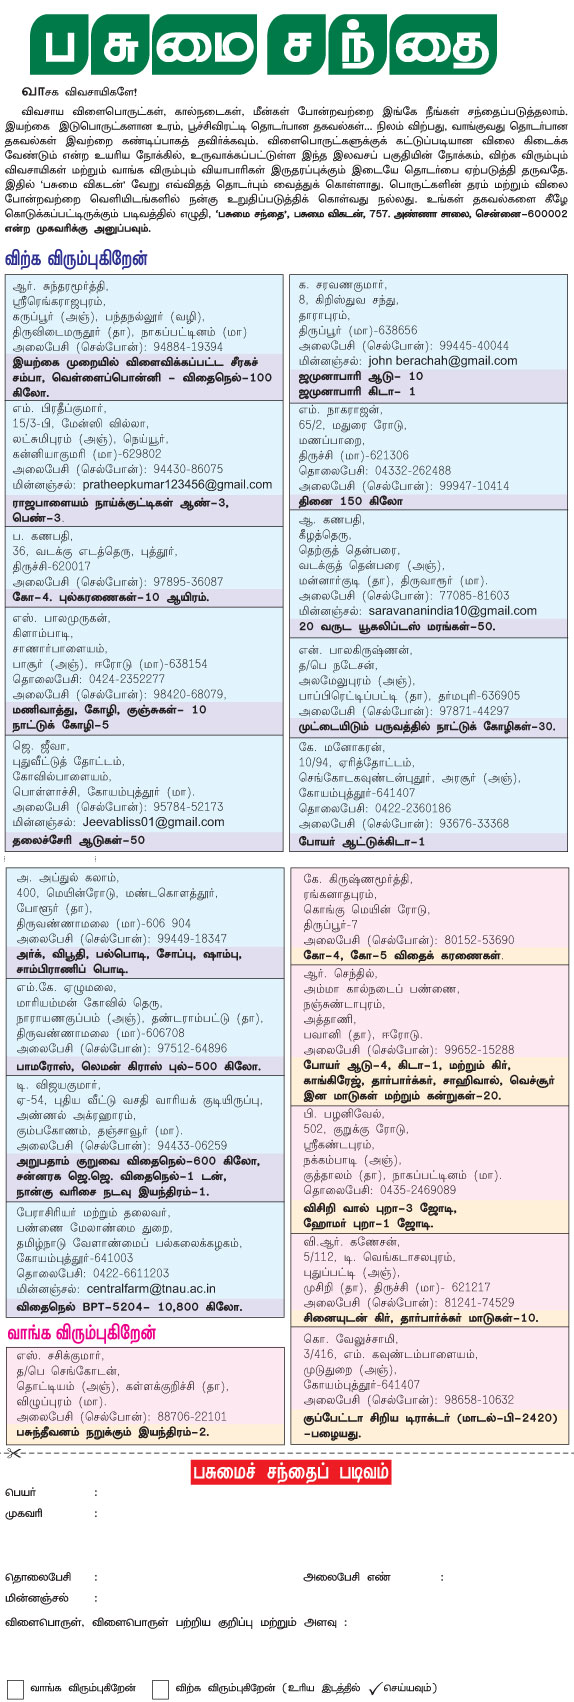 பசுமை சந்தை
வாசக விவசாயிகளே!
விவசாய விளைபொருட்கள், கால்நடைகள், மீன்கள் போன்றவற்றை இங்கே நீங்கள் சந்தைப்படுத்தலாம்.
இயற்கை இடுபொருட்களான உரம், பூச்சிவிரட்டி தொடர்பான தகவல்கள்... நிலம் விற்பது, வாங்குவது தொடர்பான
தகவல்கள் இவற்றை கண்டிப்பாகத் தவிர்க்கவும். விளைபொருட்களுக்குக் கட்டுப்படியான விலை கிடைக்க
வேண்டும் என்ற உயரிய நோக்கில், உருவாக்கப்பட்டுள்ள இந்த இலவசப் பகுதியின் நோக்கம், விற்க விரும்பும்
விவசாயிகள் மற்றும் வாங்க விரும்பும் வியாபாரிகள் இருதரப்புக்கும் இடையே தொடர்பை ஏற்படுத்தி தருவதே.
இதில் 'பசுமை விகடன்' வேறு எவ்விதத் தொடர்பும் வைத்துக் கொள்ளாது. பொருட்களின் தரம் மற்றும் விலை
போன்றவற்றை வெளியிடங்களில் நன்கு உறுதிப்படுத்திக் கொள்வது நல்லது. உங்கள் தகவல்களை கீழே
கொடுக்கப்பட்டிருக்கும் படிவத்தில் எழுதி, 'பசுமை சந்தை', பசுமை விகடன், 757. அண்ணா சாலை, சென்னை-600002
என்ற முகவரிக்கு அனுப்பவும்.
விற்க விரும்புகிறேன்
ஆர். சுந்தரமூர்த்தி,
ஸ்ரீரெங்கராஜபுரம்,
கருப்பூர் (அஞ்), பந்தநல்லூர் (வழி),
திருவிடைமருதூர் (தா), நாகப்பட்டினம் (மா)
அலைபேசி (செல்போன்): 94884-19394
இயற்கை முறையில் விளைவிக்கப்பட்ட சீரகச்
சம்பா, வெள்ளைப்பொன்னி - விதைநெல்-100
கிலோ.
எம். பிரதீப்குமார்,
15/3-பி, மேன்ஸி வில்லா,
லட்சுமிபுரம் (அஞ்), நெய்யூர்,
கன்னியாகுமரி (மா)-629802
அலைபேசி (செல்போன்): 94430-86075
மின்னஞ்சல்: pratheepkumar123456@gmail.com
ராஜபாளையம் நாய்க்குட்டிகள் ஆண்-3,
பெண்-3.
ப. கணபதி,
36, வடக்கு எடத்தெரு, புத்தூர்,
திருச்சி-620017
அலைபேசி (செல்போன்): 97895-36087
கோ-4. புல்கரணைகள்-10 ஆயிரம்.
எஸ். பாலமுருகன்,
கிளாம்பாடி,
சாணார்பாளையம்,
பாசூர் (அஞ்), ஈரோடு (மா)-638154
தொலைபேசி: 0424-2352277
அலைபேசி (செல்போன்): 98420-68079,
மணிவாத்து, கோழி, குஞ்சுகள்- 10
நாட்டுக் கோழி-5
ஜெ. ஜீவா,
புதுவீட்டுத் தோட்டம்,
கோவில்பாளையம்,
பொள்ளாச்சி, கோயம்புத்தூர் (மா).
அலைபேசி (செல்போன்): 95784-52173
மின்னஞ்சல்: Jeevabliss01@gmail.com
தலைச்சேரி ஆடுகள்-50
க. சரவணகுமார்,
8, கிறிஸ்துவ சந்து,
தாராபுரம்,
திருப்பூர் (மா)-638656
அலைபேசி (செல்போன்): 99445-40044
மின்னஞ்சல்: john berachah@gmail.com
ஜமுனாபாரி ஆடு- 10
ஜமுனாபாரி கிடா- 1
எம். நாகராஜன்,
65/2, மதுரை ரோடு,
மணப்பாறை,
திருச்சி (மா)-621306
தொலைபேசி: 04332-262488
அலைபேசி (செல்போன்): 99947-10414
தினை 150 கிலோ
ஆ. கணபதி,
கீழத்தெரு,
தெற்குத் தென்பரை,
வடக்குத் தென்பரை (அஞ்),
மன்னார்குடி (தா), திருவாரூர் (மா).
அலைபேசி (செல்போன்): 77085-81603
மின்னஞ்சல்: saravananindia10@gmail.com
20 வருட யூகலிப்டஸ் மரங்கள்-50.
என். பாலகிருஷ்ணன்,
த/பெ நடேசன்,
அலமேலுபுரம் (அஞ்),
பாப்பிரெட்டிப்பட்டி (தா), தர்மபுரி-636905
அலைபேசி (செல்போன்): 97871-44297
முட்டையிடும் பருவத்தில் நாட்டுக் கோழிகள்-30.
கே. மனோகரன்,
10/94, ஏரித்தோட்டம்,
செங்கோடகவுண்டன்புதூர், அரசூர் (அஞ்),
கோயம்புத்தூர்-641407
தொலைபேசி: 0422-2360186
அலைபேசி (செல்போன்): 93676-33368
போயர் ஆட்டுக்கிடா-1
அ. அப்துல் கலாம்,
400, மெயின்ரோடு, மண்டகொளத்தூர்,
போளூர் (தா),
திருவண்ணாமலை (மா)-606 904
அலைபேசி (செல்போன்): 99449-18347
அர்க், விபூதி, பல்பொடி, சோப்பு, ஷாம்பு,
சாம்பிராணிப் பொடி.
எம்.கே. ஏழுமலை,
மாரியம்மன் கோவில் தெரு,
நாராயணகுப்பம் (அஞ்), தண்டராம்பட்டு (தா),
திருவண்ணாமலை (மா)-606708
அலைபேசி (செல்போன்): 97512-64896
பாமரோஸ், லெமன் கிராஸ் புல்-500 கிலோ.
டி. விஜயகுமார்,
ஏ-54, புதிய வீட்டு வசதி வாரியக் குடியிருப்பு,
அண்ணல் அக்ரஹாரம்,
கும்பகோணம், தஞ்சாவூர் (மா).
அலைபேசி (செல்போன்): 94433-06259
அறுபதாம் குறுவை விதைநெல்-600 கிலோ,
சன்னரக ஜெ.ஜெ. விதைநெல்-1 டன்,
நான்கு வரிசை நடவு இயந்திரம்-1.
பேராசிரியர் மற்றும் தலைவர்,
பண்ணை மேலாண்மை துறை,
தமிழ்நாடு வேளாண்மைப் பல்கலைக்கழகம்,
கோயம்புத்தூர்-641003
தொலைபேசி: 0422-6611203
மின்னஞ்சல்: centralfarm@tnau.ac.in
விதைநெல் BPT-5204- 10,800 கிலோ.
வாங்க விரும்புகிறேன்
எஸ். சசிக்குமார்,
த/பெ செங்கோடன்,
தொட்டியம் (அஞ்), கள்ளக்குறிச்சி (தா),
விழுப்புரம் (மா).
அலைபேசி (செல்போன்): 88706-22101
பசுந்தீவனம் நறுக்கும் இயந்திரம்-2.
கே. கிருஷ்ணமூர்த்தி,
ரங்கனாதபுரம்,
கொங்கு மெயின் ரோடு,
திருப்பூர்-7
அலைபேசி (செல்போன்): 80152-53690
கோ-4, கோ-5 விதைக் கரணைகள்.
ஆர். செந்தில்,
அம்மா கால்நடைப் பண்ணை,
நஞ்சுண்டாபுரம்,
அத்தாணி,
பவானி (தா), ஈரோடு.
அலைபேசி (செல்போன்): 99652-15288
போயர் ஆடு-4, கிடா-1, மற்றும் கிர்,
காங்கிரேஜ், தார்பார்க்கர், சாஹிவால், வெச்சூர்
இன மாடுகள் மற்றும் கன்றுகள்-20.
பி. பழனிவேல்,
502, குறுக்கு ரோடு,
ஸ்ரீகண்டபுரம்,
நக்கம்பாடி (அஞ்),
குத்தாலம் (தா), நாகப்பட்டினம் (மா).
தொலைபேசி: 0435-2469089
விசிறி வால் புறா-3 ஜோடி,
ஹோமர் புறா-1 ஜோடி.
வி.ஆர். கணேசன்,
5/112, டி. வெங்கடாசலபுரம்,
புதுப்பட்டி (அஞ்),
முசிறி (தா), திருச்சி (மா)- 621217
அலைபேசி (செல்போன்): 81241-74529
சினையுடன் கிர், தார்பார்க்கர் மாடுகள்-10.
கொ. வேலுச்சாமி,
3/416, எம். கவுண்டம்பாளையம்,
முடுதுறை (அஞ்),
கோயம்புத்தூர்-641407
அலைபேசி (செல்போன்): 98658-10632
குப்பேட்டா சிறிய டிராக்டர் (மாடல்-பி-2420)
-பழையது.
பசுமைச் சந்தைப் படிவம்
பெயர் :
முகவரி :
தொலைபேசி : அலைபேசி எண் :
மின்னஞ்சல் :
விளைபொருள், விளைபொருள் பற்றிய குறிப்பு மற்றும் அளவு :
வாங்க விரும்புகிறேன் விற்க விரும்புகிறேன் (உரிய இடத்தில் ✓செய்யவும்)